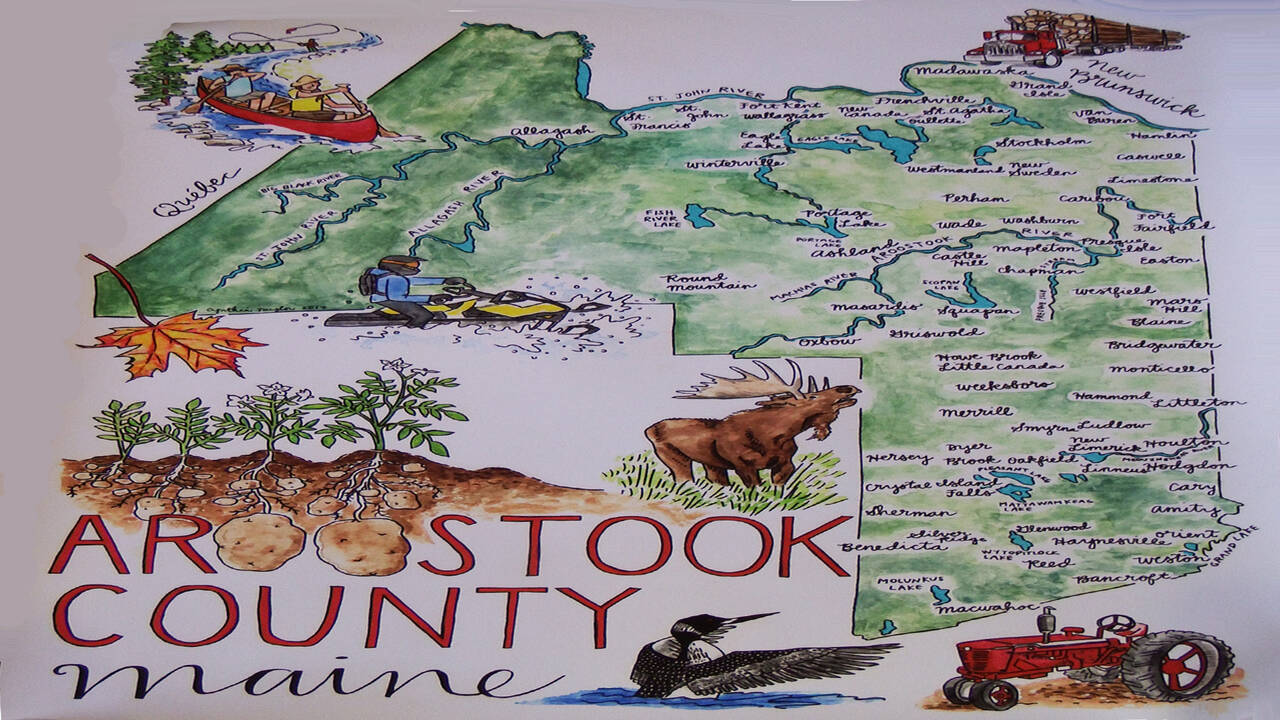 Madawaska
Grand
Isle
New
Brunswick
ST. JOHN RIVER
St.
Francis
St.
John
Fort Kent
Wallagrass
New
Canada
Frenchville
St. Agatha
Van
Buren
Hamlin
Allagash
Eagle
Lake
EAGLE LAKE
Stockholm
Caswell
Winterville
Westmanland
New
Sweden
Limestone
Québec
BIG BLACK RIVER
ST. JOHN RIVER
ALLAGASH RIVER
FISH
RIVER
LAKE
Portage
Lake
PORTAGE
LAKE
Perham
Caribou
Wade
Washburn
Fort
Fairfield
Ashland
AROOSTOOK
RIVER
Castle
Hill
Mapleton
Presque
Isle
Easton
Chapman
Round
Mountain
MACHIAS RIVER
SCOPAN
LAKE
Westfield
Mars
Hill
Masardis
Squapan
Blaine
Oxbow
Griswold
Bridgewater
Howe Brook
Little Canada
Monticello
Weeksboro
Hammond
Littleton
Merrill
Smyrna
Ludlow
New
Limerick
Houlton
Hersey
Dyer
Brook
Oakfield
Linneus
Hodgdon
Crystal
Island
Falls
PLEASANT
LAKE
Cary
MATTAWAMKEAG
LAKE
Sherman
Amity
Silver
Ridge
Glenwood
Haynesville
Orient
Benedicta
WYTOPITLOCK
LAKE
Reed
Weston
GRAND LAKE
Bancroft
MOLUNKUS
LAKE
Macwahoc
AROOSTOOK
COUNTY
maine